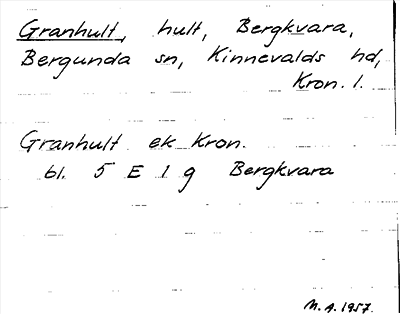 Granhult, hult, Bergkvara,
Bergunda sn, Kinnevalds hd,
Kron. l.
Granhult ek Kron.
bl. 5 E 1 g Bergkvara
M. A. 1957.